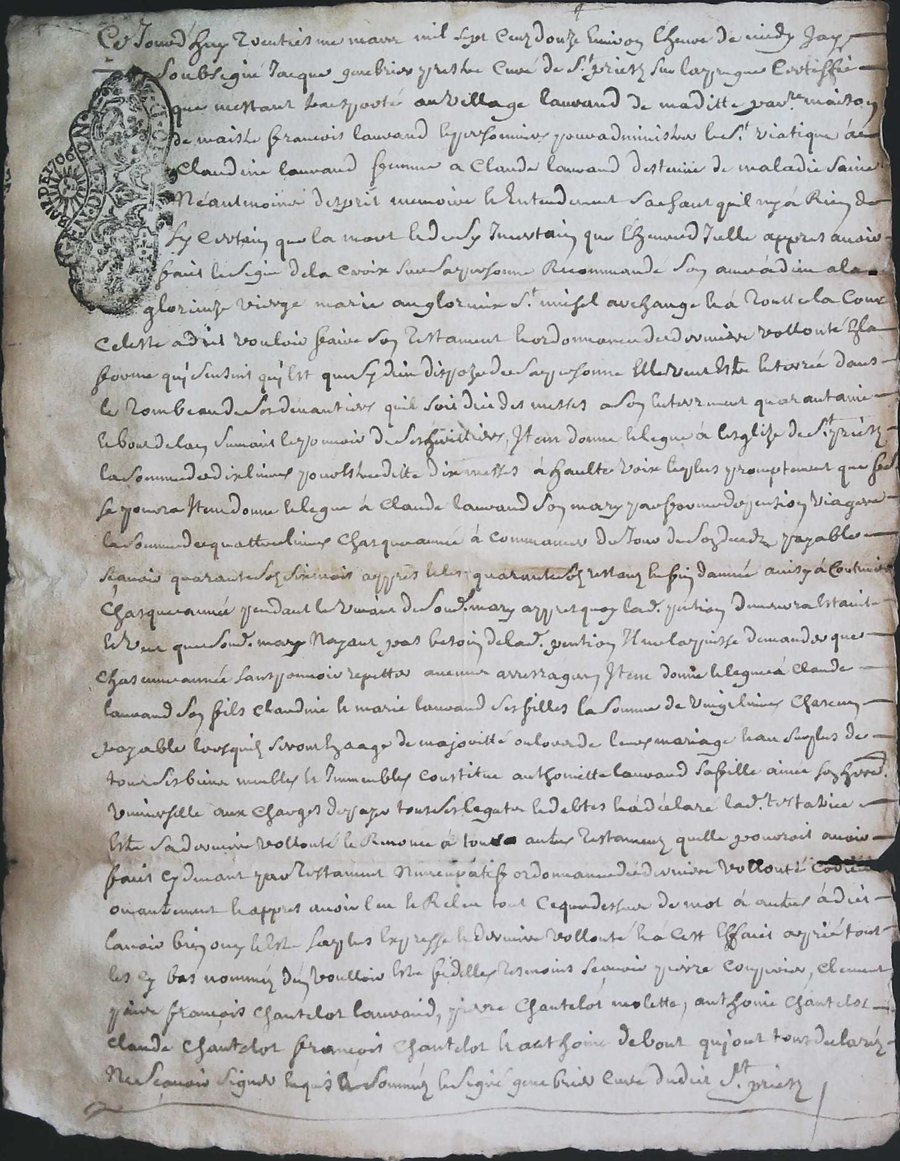 Ce Jourd'huy ventiesme mars mil sept cent douze Environ l'heure de midy Jay
Soubsigné Jacque genebrier prestre Curé de St priest Sur lapprugne Certiffie
que mestant transporté au village lauraud de maditte parre maison
de maistre françois lauraud le personnier pour administrer le St viatique à
Claudine lauraud femme a Claude lauraud destenue de maladie Saine
Néantmoins desprit memoire et Entendement Sachant quil ny à Rien de
sy Certain que la mort et de sy Incertain que l'heure d'Icelle appres avoir
fait le signe de la Croix sur sa personne Recommandé Son ame à dieu a la
glorieuse vierge marie au glorieux St michel archange et à toutte la Cour
Celeste a dit vouloir faire son testament et ordonnance de derniere vollonté En la
forme qui sensuit qui est que sy dieu dispoze de sa personne Elle veut Estre Enterrée dans
le tombeau de ses devantiers quil soit dit des messes a son Enterrement quarantaine
et bout de lan suivant le pouvoir de ses heritiers, Item donne et legue à lesglize de St priest
la somme de dix livres pour Estre ditte dix messes à haulte voix le plus promptement que
se pourra Item donne et legue à Claude lauraud Son mary par forme de pention viagere
la somme de quattre livres Chasque année à commancer du Jour de son deceds payables
sçavoir quarante sols six mois appres et les quarante sols restant En fin d'année ainsy à Continuer
Chasque année pendant le vivant de sond. mary appres quoy lad. pention demeurera Estainte
Et veut que sond. mary Nayant pas besoin de lad. pention Il ne la puisse demander que
Chascune année sans pouvoir repetter aucuns arrerages Item donne et legue à Claude
lauraud son fils Claudine et marie lauraud ses filles la somme de vingt livres Chascun
payable lorsquils seront En aage de majoritté ou lors de leurs mariage Et au surplus de
tous ses biens meubles et Immeubles Constitue anthoinette lauraud sa fille aisnée son here.
universelle aux Charges de payer tous ses legats et debtes Et à déclaré lad. testatrice
Estre sa derniere vollonté et Renonce à tous autres testament quelle pourroit avoir
fait cy devant par testament Nuncupatif ordonnance de derniere vollonté
ou autrement Et appres avoir leu et Releu tout Ce que dessus de mot à autres à dit
lavoir bien ouy et Estre sa plus Expresse et derniere vollonté Et à cest Effait a prié tous
les cy bas nommés d'en voulloir Estre fidelles tesmoins sçavoir pierre coupérier, Clement
françois Chantelot lauraud, pierre Chantelot molette, anthoine Chantelot
Claude Chantelot françois Chantelot et anthoine debout qui ont tous declarés
Ne sçavoir signer Enquis et sommés et signé genebrier curé dudit St priest